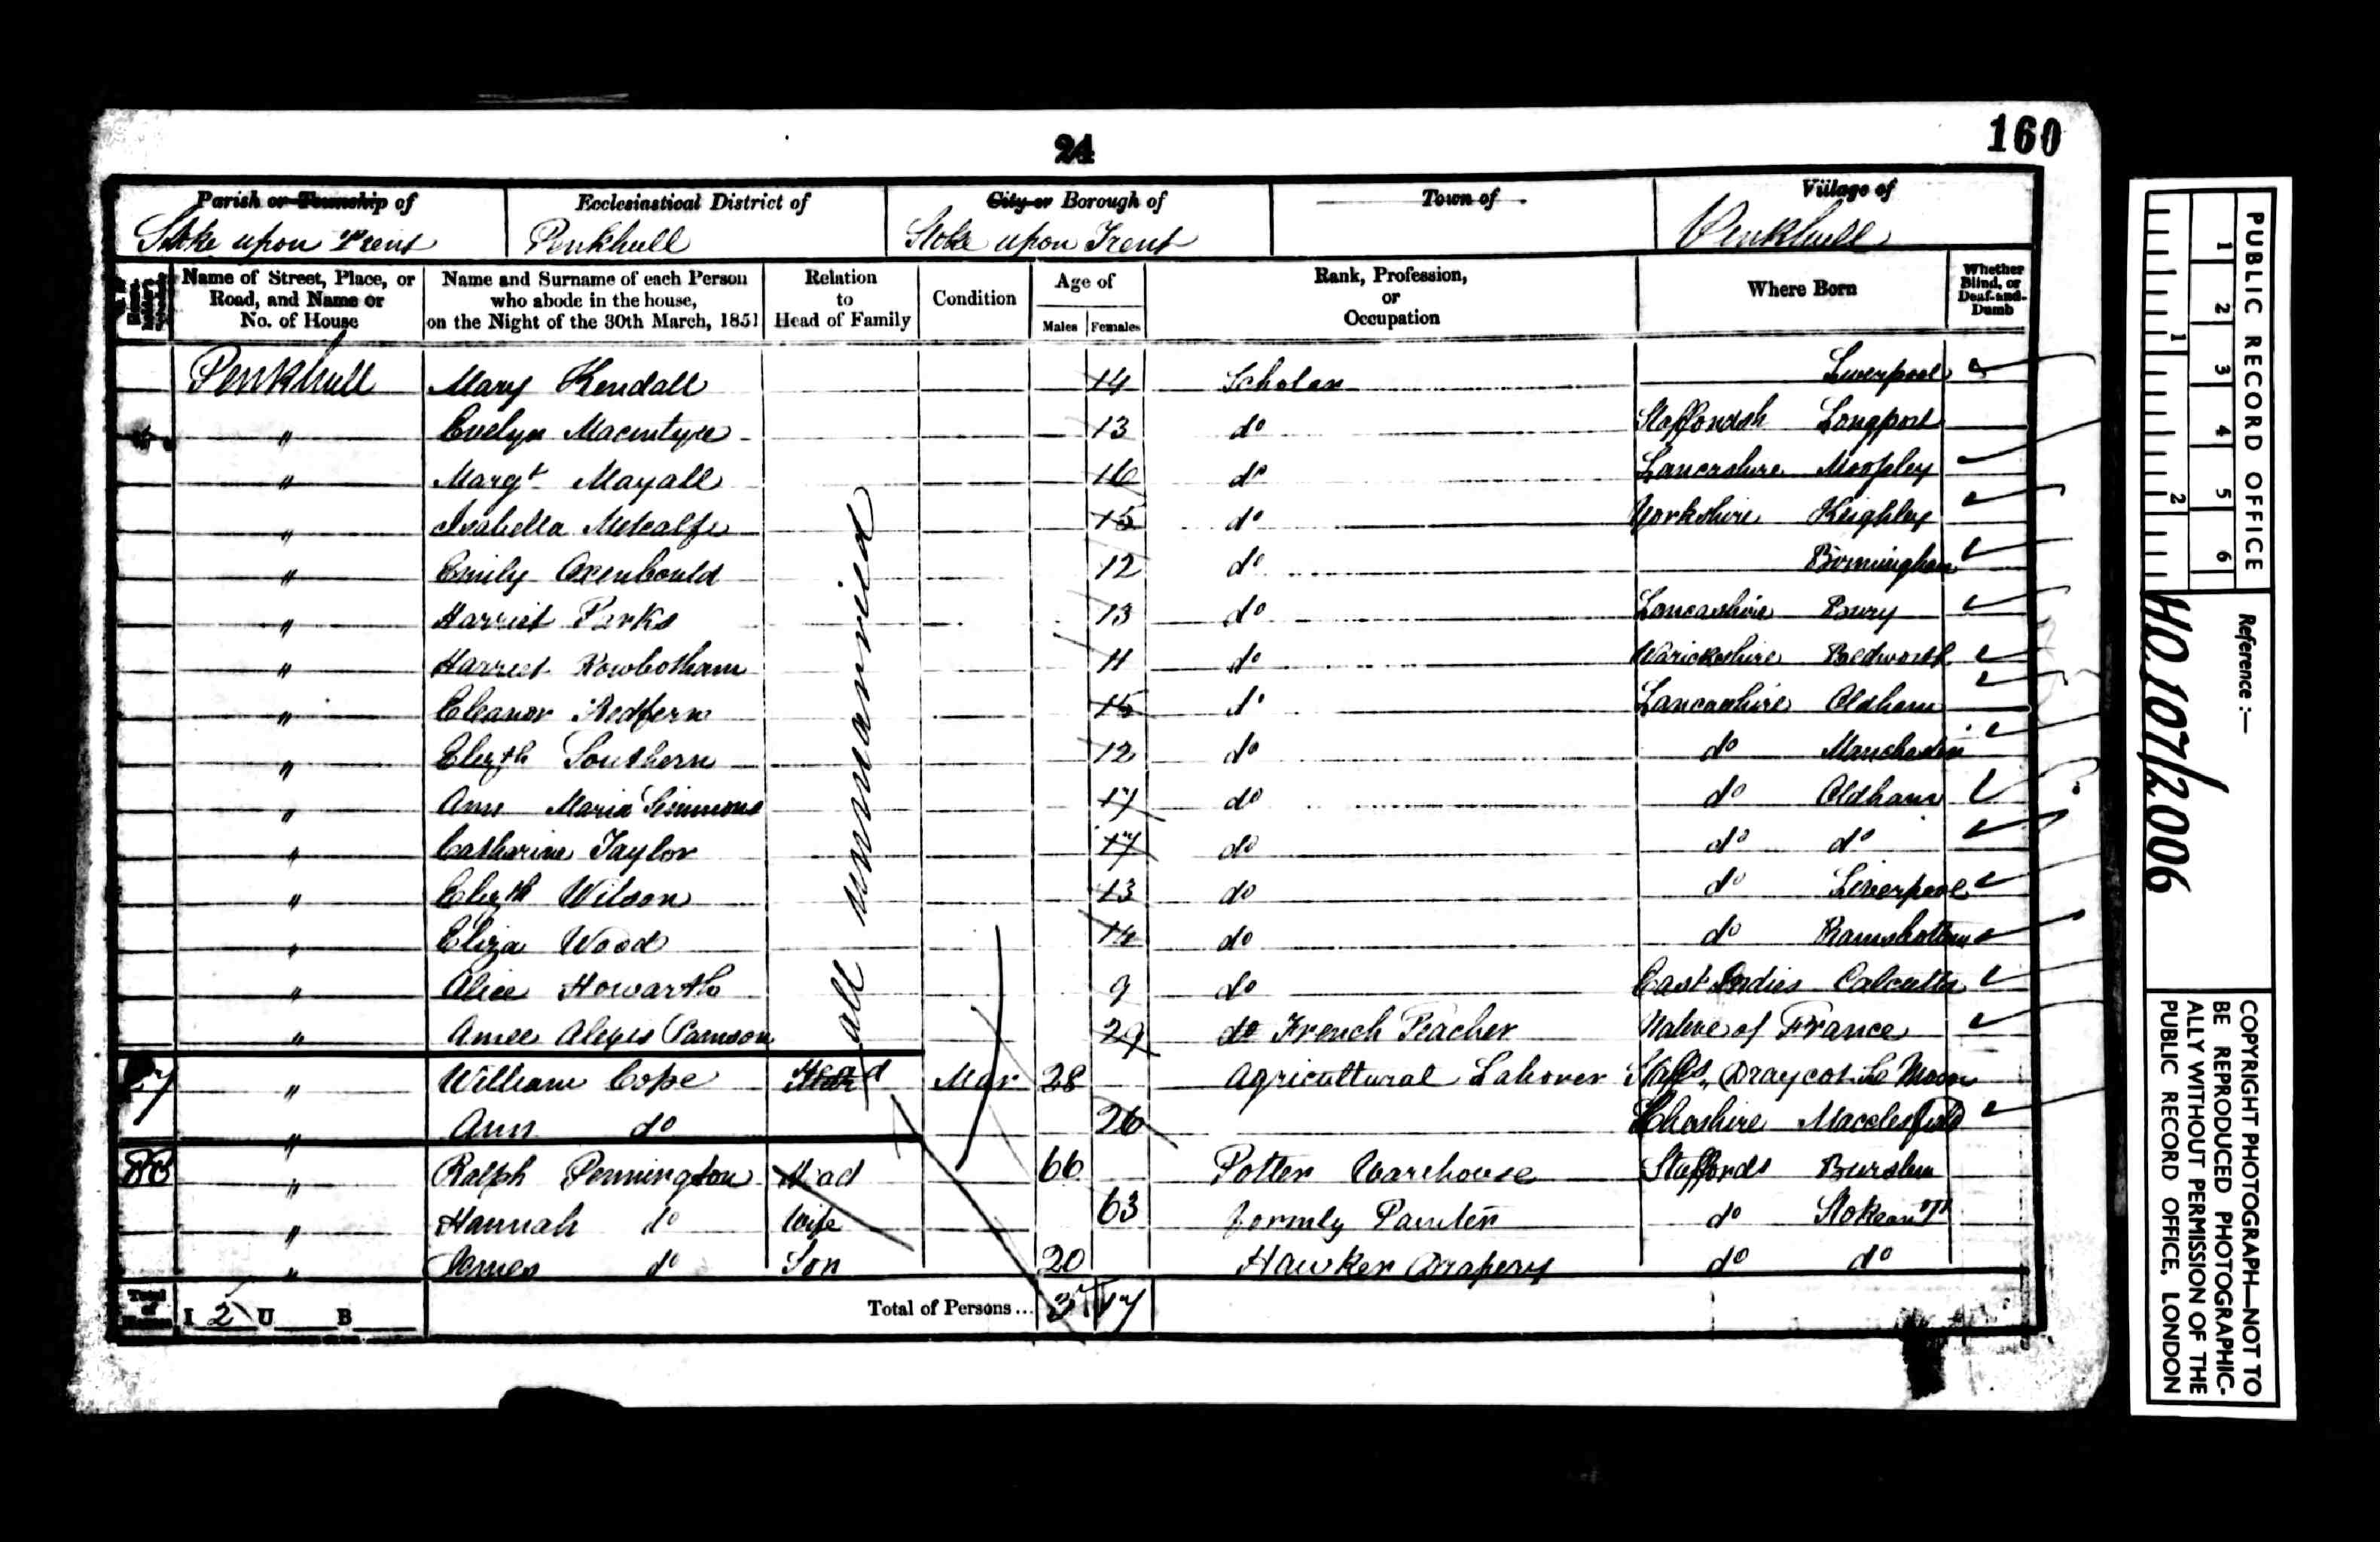 24
160
Parish or Township of
Stoke upon Trent
Ecclesiastical District of
Penkhull
City or Borough of
Stoke upon Trent
Town of
Village of
Penkhull
Name of Street, Place, or Road, and Name or No. of House
Name and Surname of each Person who abode in the house, on the Night of the 30th March, 1851
Relation to Head of Family
Condition
Age of
Males Females
Rank, Profession, or Occupation
Where Born
Whether Blind, or Deaf-and-Dumb
Penkhull Mary Kendall 14 Scholar Liverpool
" Evelyn Macintyre 13 do Staffordsh Longport
" Margt Mayall 16 do Lancashire
" Isabella Metcalfe 15 do Yorkshire Keighley
" Emily Oxenbould 12 do Birmingham
" Harriet Parks 13 do Lancashire Bury
" Harriet Rowbotham 11 do Warickshire Bedworth
" Eleanor Redfern 15 do Lancashire Oldham
" Elizth Southern 12 do do Manchester
" Ann Maria Simmons 17 do do Oldham
" Catharine Taylor 17 do do do
" Elizth Wilson 13 do do Liverpool
" Eliza Wood 14 do do Ramsbottom
" Alice Howarth 9 do East Indies Calcutta
" Amee Alexis 29 do French Teacher Native of France
all unmarried
" William Cope Head Mar 28 Agricultural Laborer Staffs Draycot Le Moor
" Ann do 26 Cheshire Macclesfield
" Ralph Pennington Head 66 Potter Warehouse Staffords Burslem
" Hannah do Wife 63 formly Painter do Stoke on T
" James do Son 20 Hawker Drapery do do
Total of Houses I 2 U B
Total of Persons... 3 17
PUBLIC RECORD OFFICE
1 2 3 4 5 6
1 2
Reference :—
HO 107/2006
COPYRIGHT PHOTOGRAPH—NOT TO
BE REPRODUCED PHOTOGRAPHIC-
ALLY WITHOUT PERMISSION OF THE
PUBLIC RECORD OFFICE, LONDON